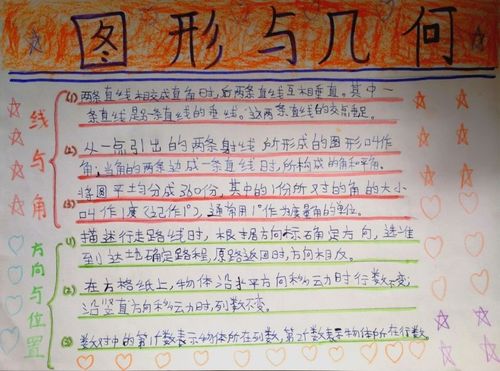 图形与几何
线与角
(1) 两条直线相交成直角时,两条直线互相垂直。其中一
条直线是另一条直线的垂线。这两条直线的交点垂足。
从一点引出的两条射线所形成的图形叫作
角;当角的两条边成一条直线时,所构成的角和平角。
将圆平均分成360份,其中的1份所对的角的大小
(3) 叫作1度(记作1°),通常用1°作为度量角的单位。
方向与位置
(1) 描述行走路线时,根据方向标确定方向,选准
到达地确定路程,原路返回时,方向相反。
(2) 在方格纸上,物体沿水平方向移动时行数不变;
沿竖直方向移动时,列数不变。
(3) 数对中的第1个数表示物体所在列数,第2个数表示物体所在行数。